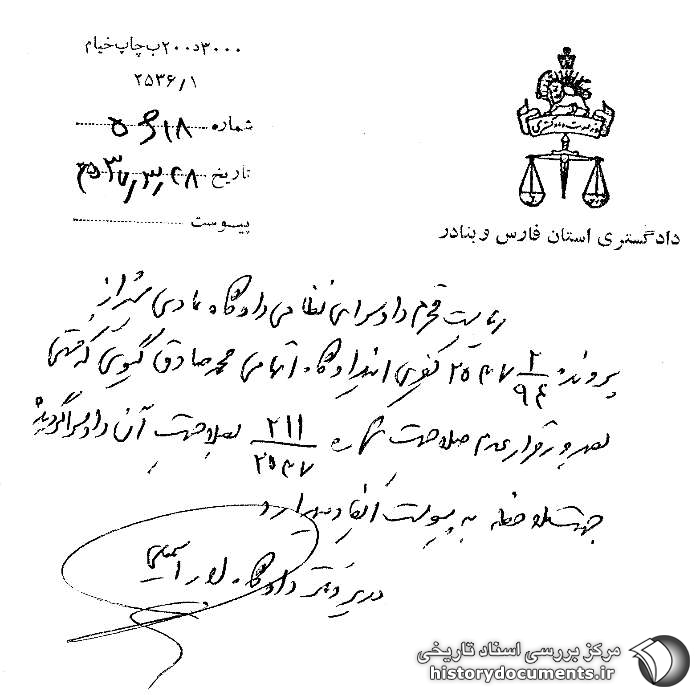 ۳۰۰۰د۲۰۰ب چاپ خیام
۲۵۳۶/۱
شماره ۵۶۱۸
تاریخ ۲۵۳۷/۳/۲۸
پیوست
دادگستری استان فارس و بنادر
ریاست محترم دادسرای نظامی دادگاه عادی شیراز
پرونده ۲/۹۴ ۲۵۳۷ کیفری این دادگاه اتهامی محمد صادق که منتهی
بصدور قرار عدم صلاحیت شماره ۲۱۱/۲۵۳۷ بصلاحیت آن دادسرا گردیده
جهت ملاحظه به پیوست ایفاد میدارد
مدیر دفتر دادگاه
مرکز بررسی اسناد تاریخی
historydocuments.ir